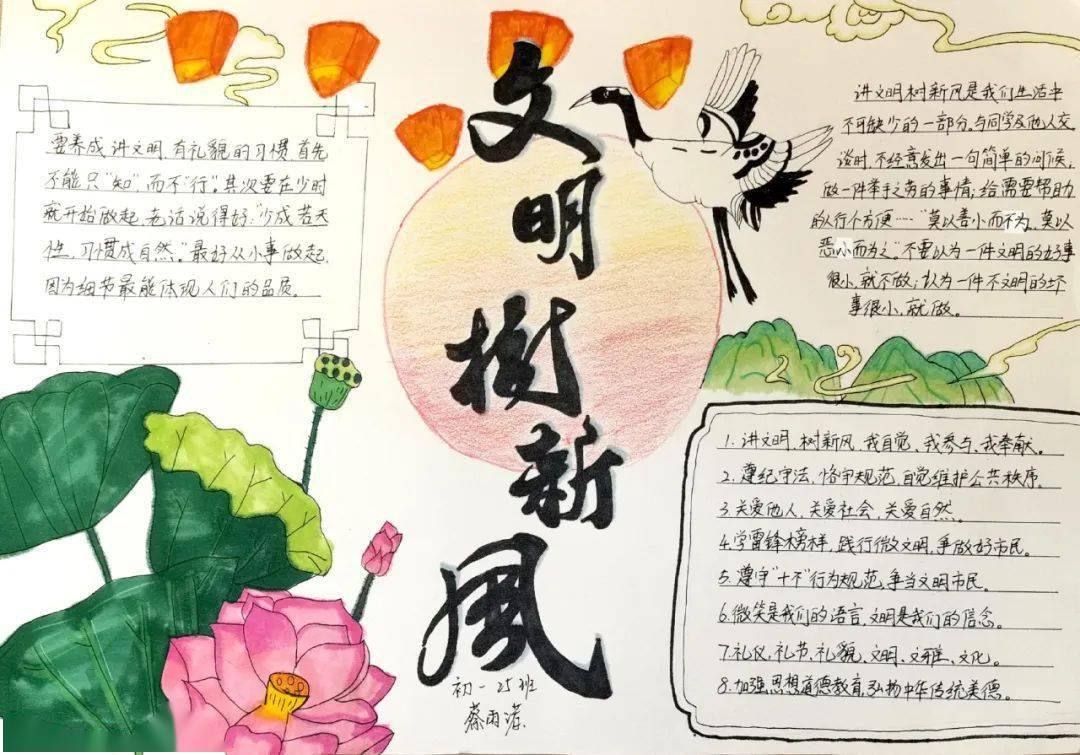 文明树新风
要养成讲文明,有礼貌的习惯,首先
不能只“知”而不“行”。其次要在少时
就开始做起,老话说得好:“少成若天
性,习惯成自然”最好从小事做起,
因为细节最能体现人们的品质。
讲文明树新风是我们生活中
不可缺少的一部分。与同学及他人交
谈时,不经意发出一句简单的问候,
做一件举手之劳的事情;给需要帮助
的人行个方便……“莫以善小而不为,莫以
恶小而为之”不要认为一件文明的好事
很小,就不做;认为一件不文明的坏
事很小,就做。
1.讲文明,树新风,我自觉、我参与、我奉献。
2.遵纪守法,恪守规范,自觉维护公共秩序。
3.关爱他人,关爱社会,关爱自然。
4.学雷锋榜样,践行微文明,争做好市民。
5.遵守“十不”行为规范,争当文明市民。
6.微笑是我们的语言,文明是我们的信念。
7.礼仪、礼节、礼貌、文明、文雅、文化。
8.加强思想道德教育,弘扬中华传统美德。
初一25班
蔡雨